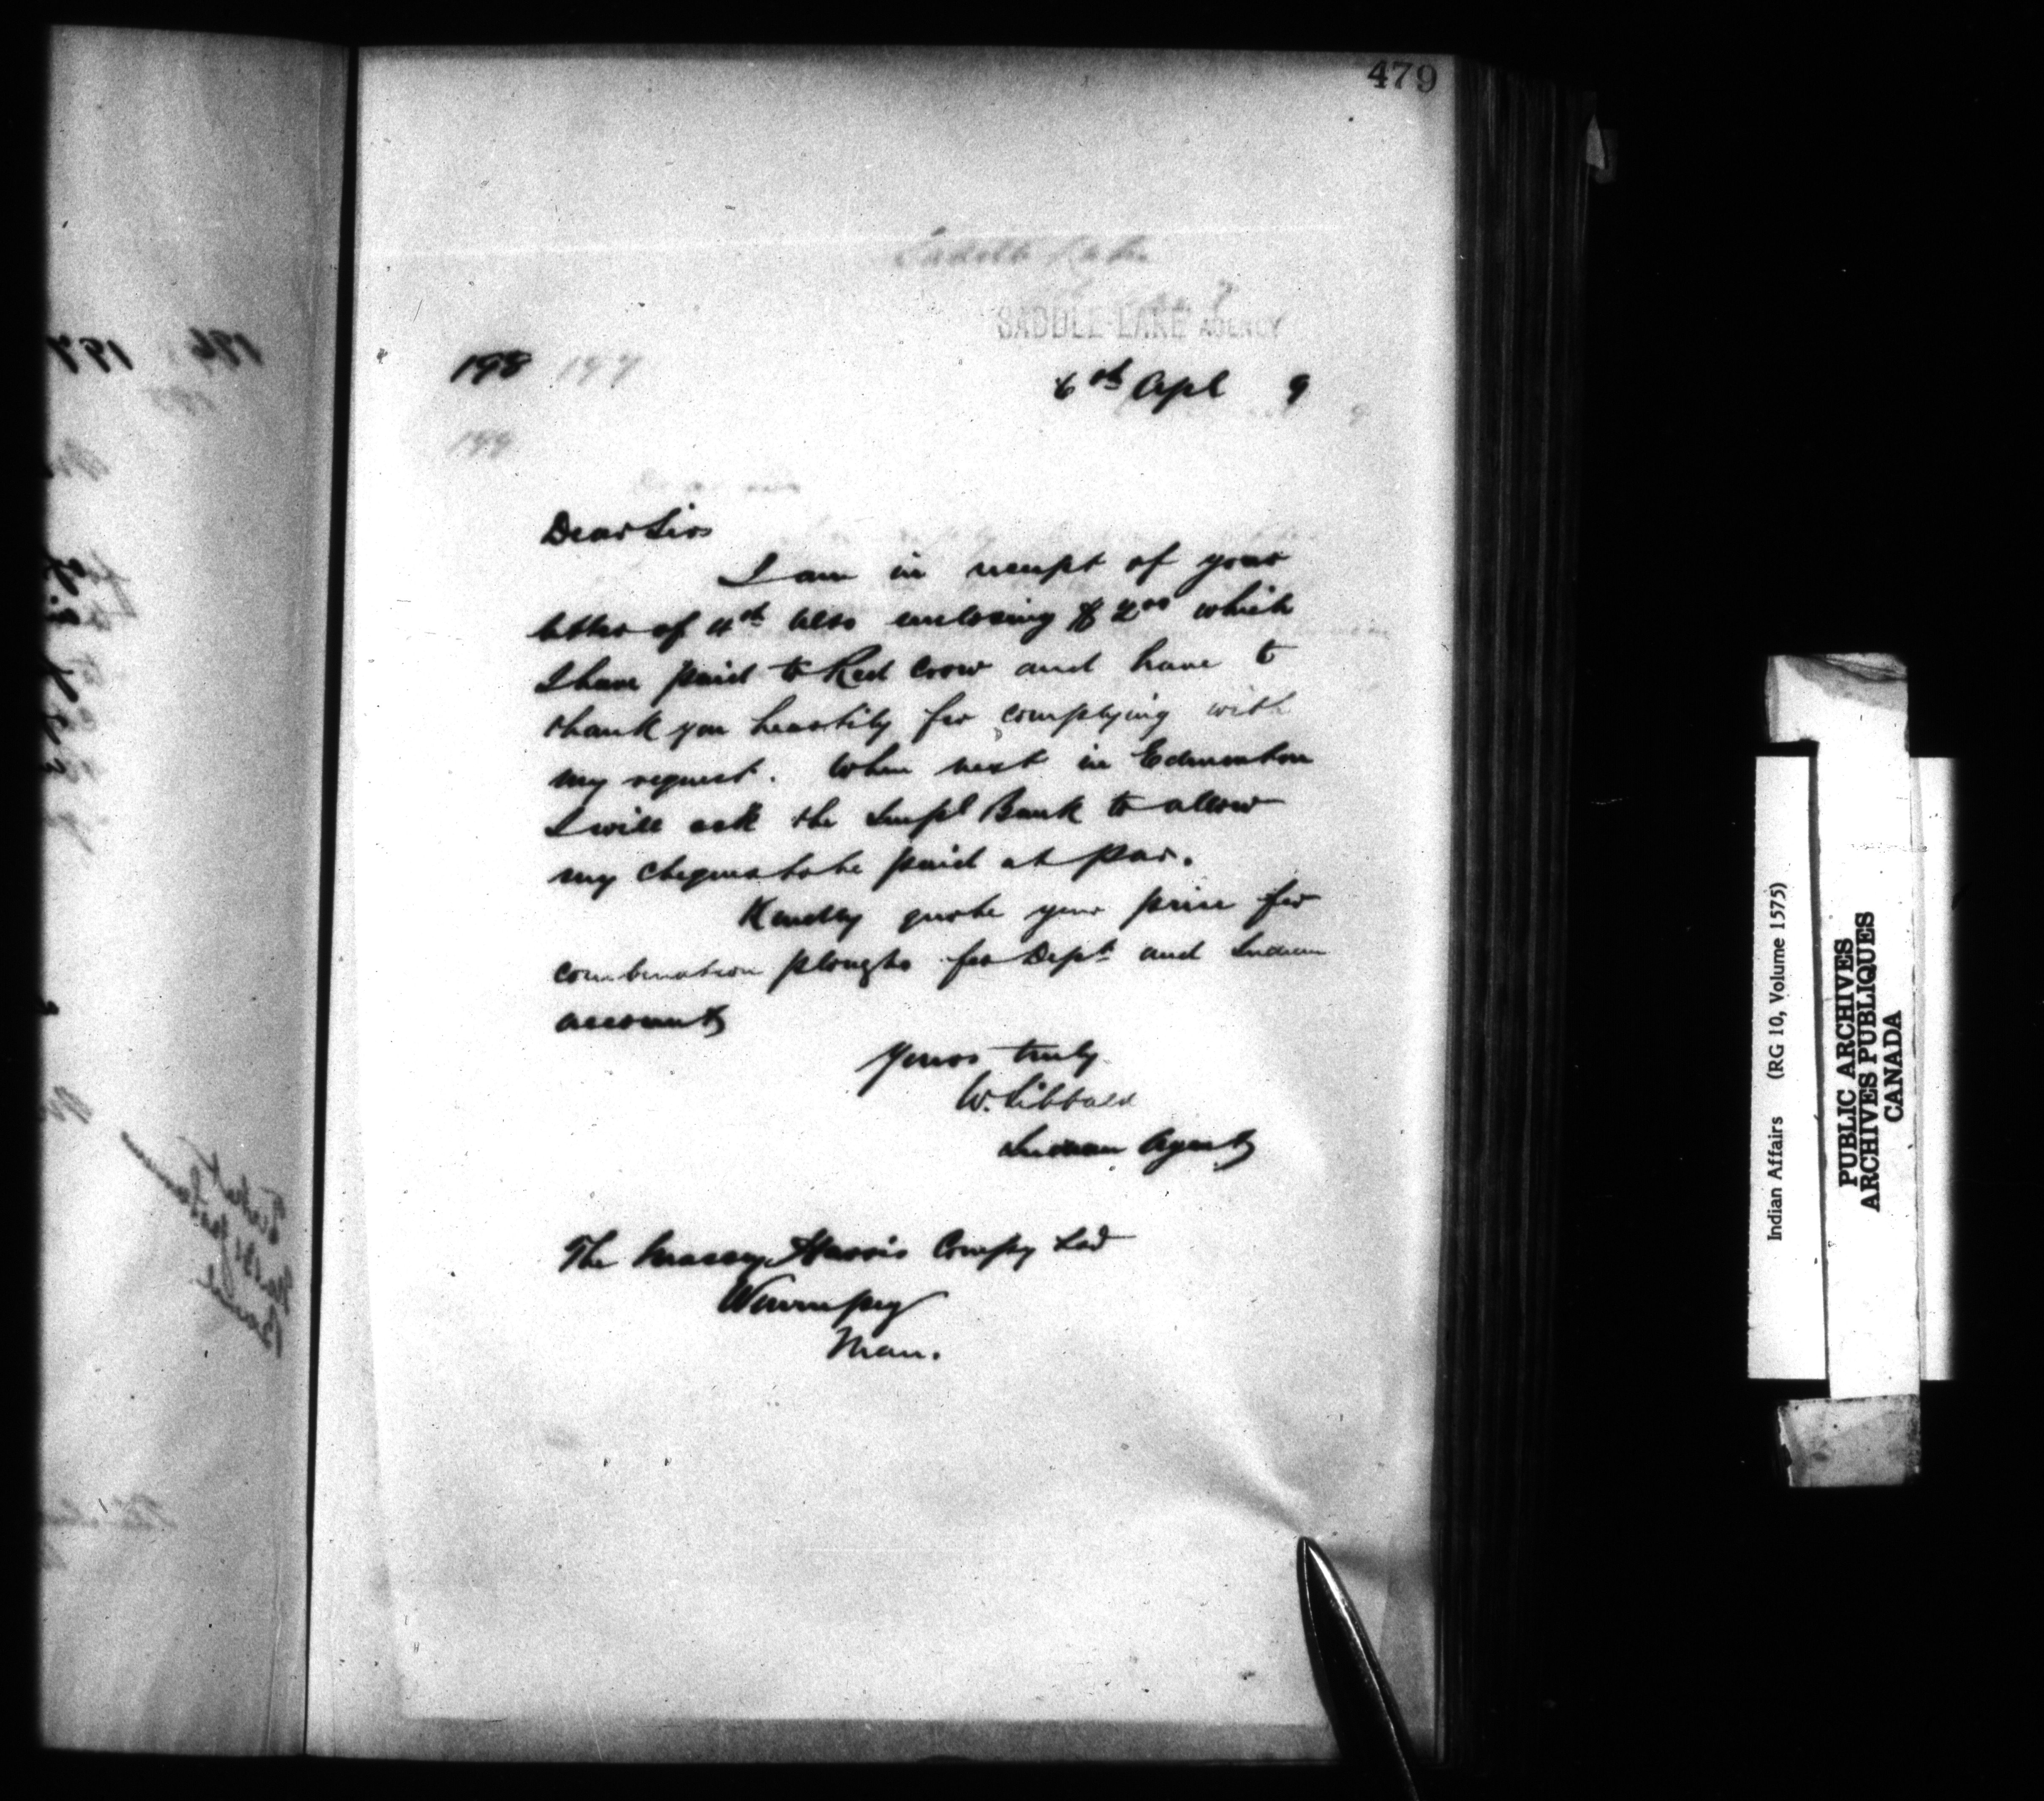 479
Saddle Lake
SADDLE LAKE AGENCY
198 197
6th Apl 9
199
Dear Sirs
I am in receipt of your
letter of 4th also enclosing $2.00 which
I have paid to Red Crow and have to
thank you heartily for complying with
my request. When next in Edmonton
I will ask the Impl Bank to allow
my cheques to be paid at par.
Kindly quote your price for
combination ploughs for Dept and Indian
accounts
Yours truly
W. Sibbald
Indian Agent
The Massey Harris Compy Ltd
Winnipeg
Man.
Indian Affairs (RG 10, Volume 1575)
PUBLIC ARCHIVES
ARCHIVES PUBLIQUES
CANADA